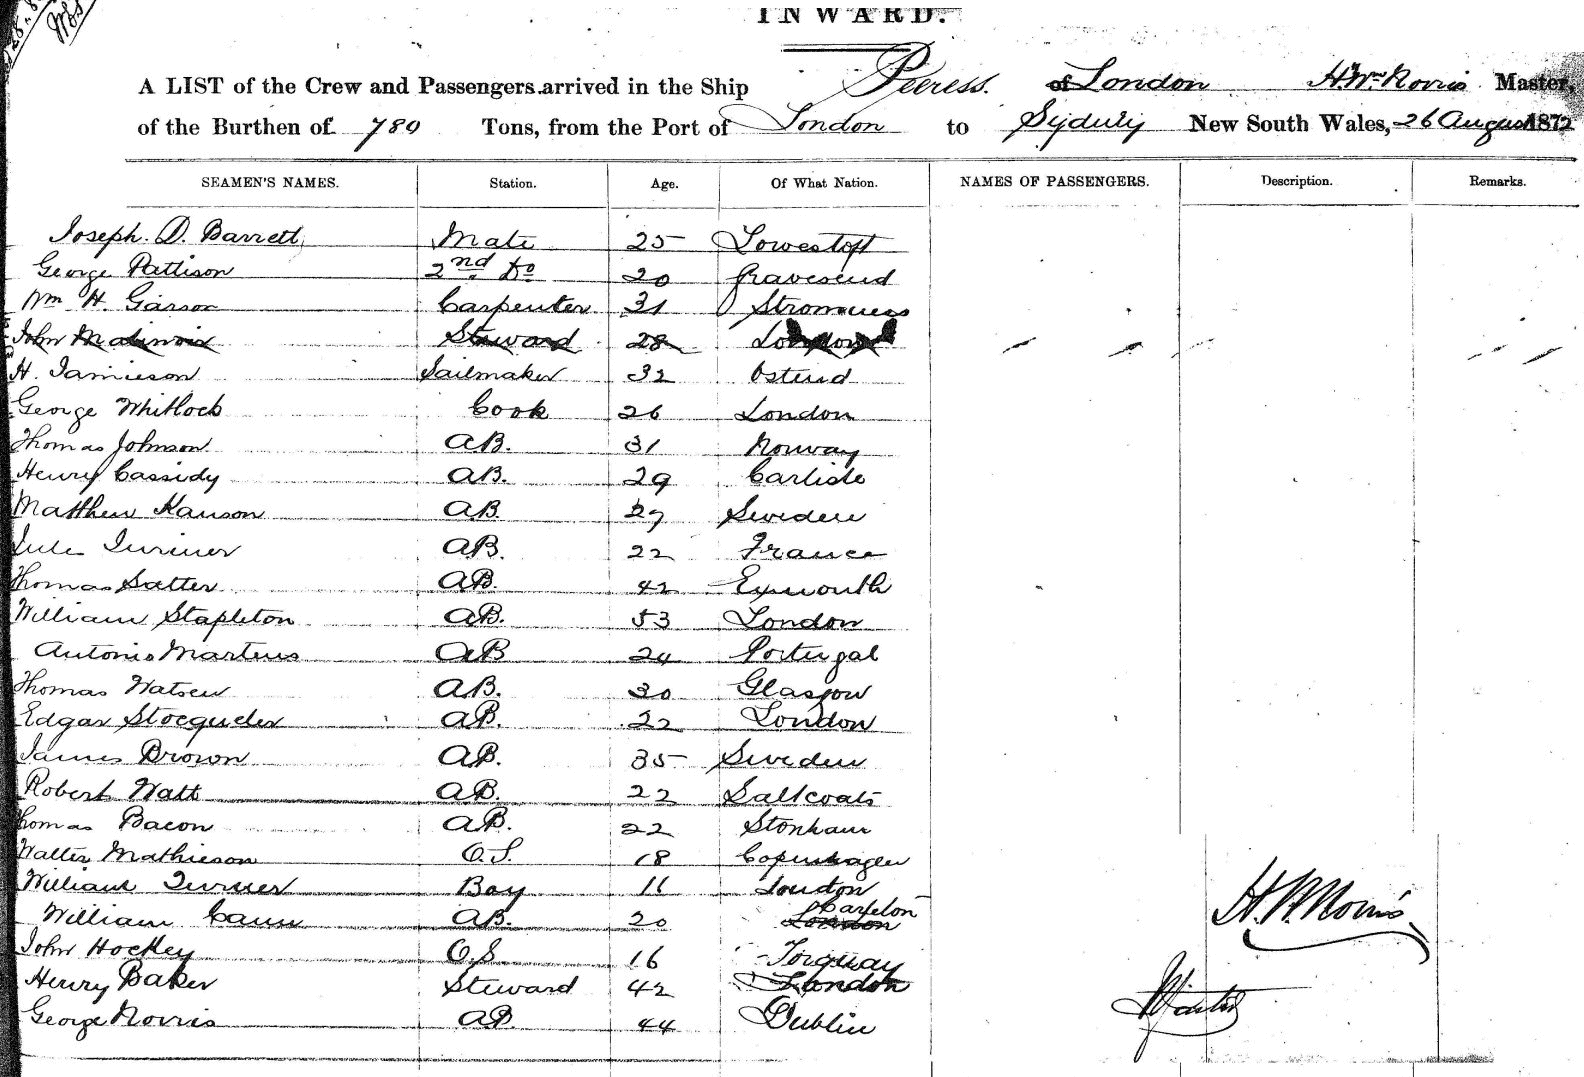 INWARD.
A LIST of the Crew and Passengers arrived in the Ship Peeress. of London H. Wm Norris Master,
of the Burthen of 789 Tons, from the Port of London to Sydney New South Wales, 26 August 1872
SEAMEN'S NAMES. Station. Age. Of What Nation. NAMES OF PASSENGERS. Description. Remarks.
Joseph. D. Barrett Mate 25 Lowestoft
George Pattison 2nd Do 20 Gravesend
Wm H. Garson Carpenter 31 Stromness
John Steward 28 London
H. Jamieson Sailmaker 32 Ostend
George Whitlock Cook 26 London
Thomas Johnson AB. 31 Norway
Henry Cassidy AB. 29 Carlisle
Matthew Hanson AB 27 Sweden
Jules Turiner AB. 22 France
Thomas Salter AB. 42 Exmouth
William Stapleton AB. 53 London
Antonio Martens AB 24 Portugal
Thomas Watson AB. 30 Glasgow
Edgar Stocqueler AB. 22 London
James Brown AB. 35 Sweden
Robert Watt AB. 22 Saltcoats
Thomas Bacon AB. 22 Stonham
Walter Mathieson O.S. 18 Copenhagen
William Turner Boy 16 London
William Cann AB. 20 London Carlton
John Hockey O.S 16 Torquay
Henry Baker Steward 42 London
George Norris AB 44 Dublin
H. W Norris